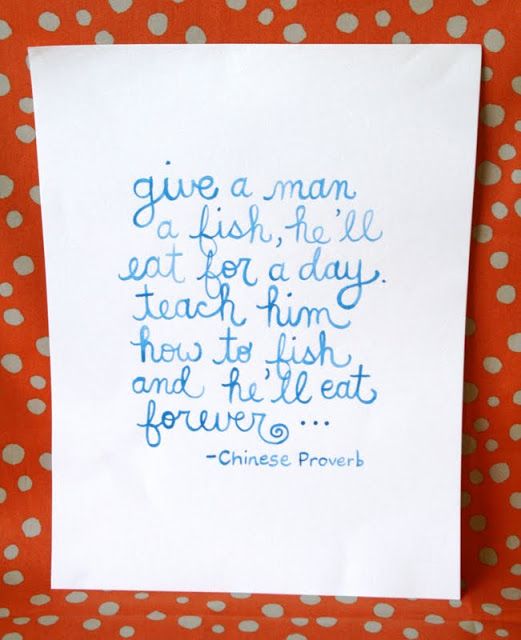 give a man
a fish, he'll
eat for a day.
teach him
how to fish
and he'll eat
forever ...
-Chinese Proverb